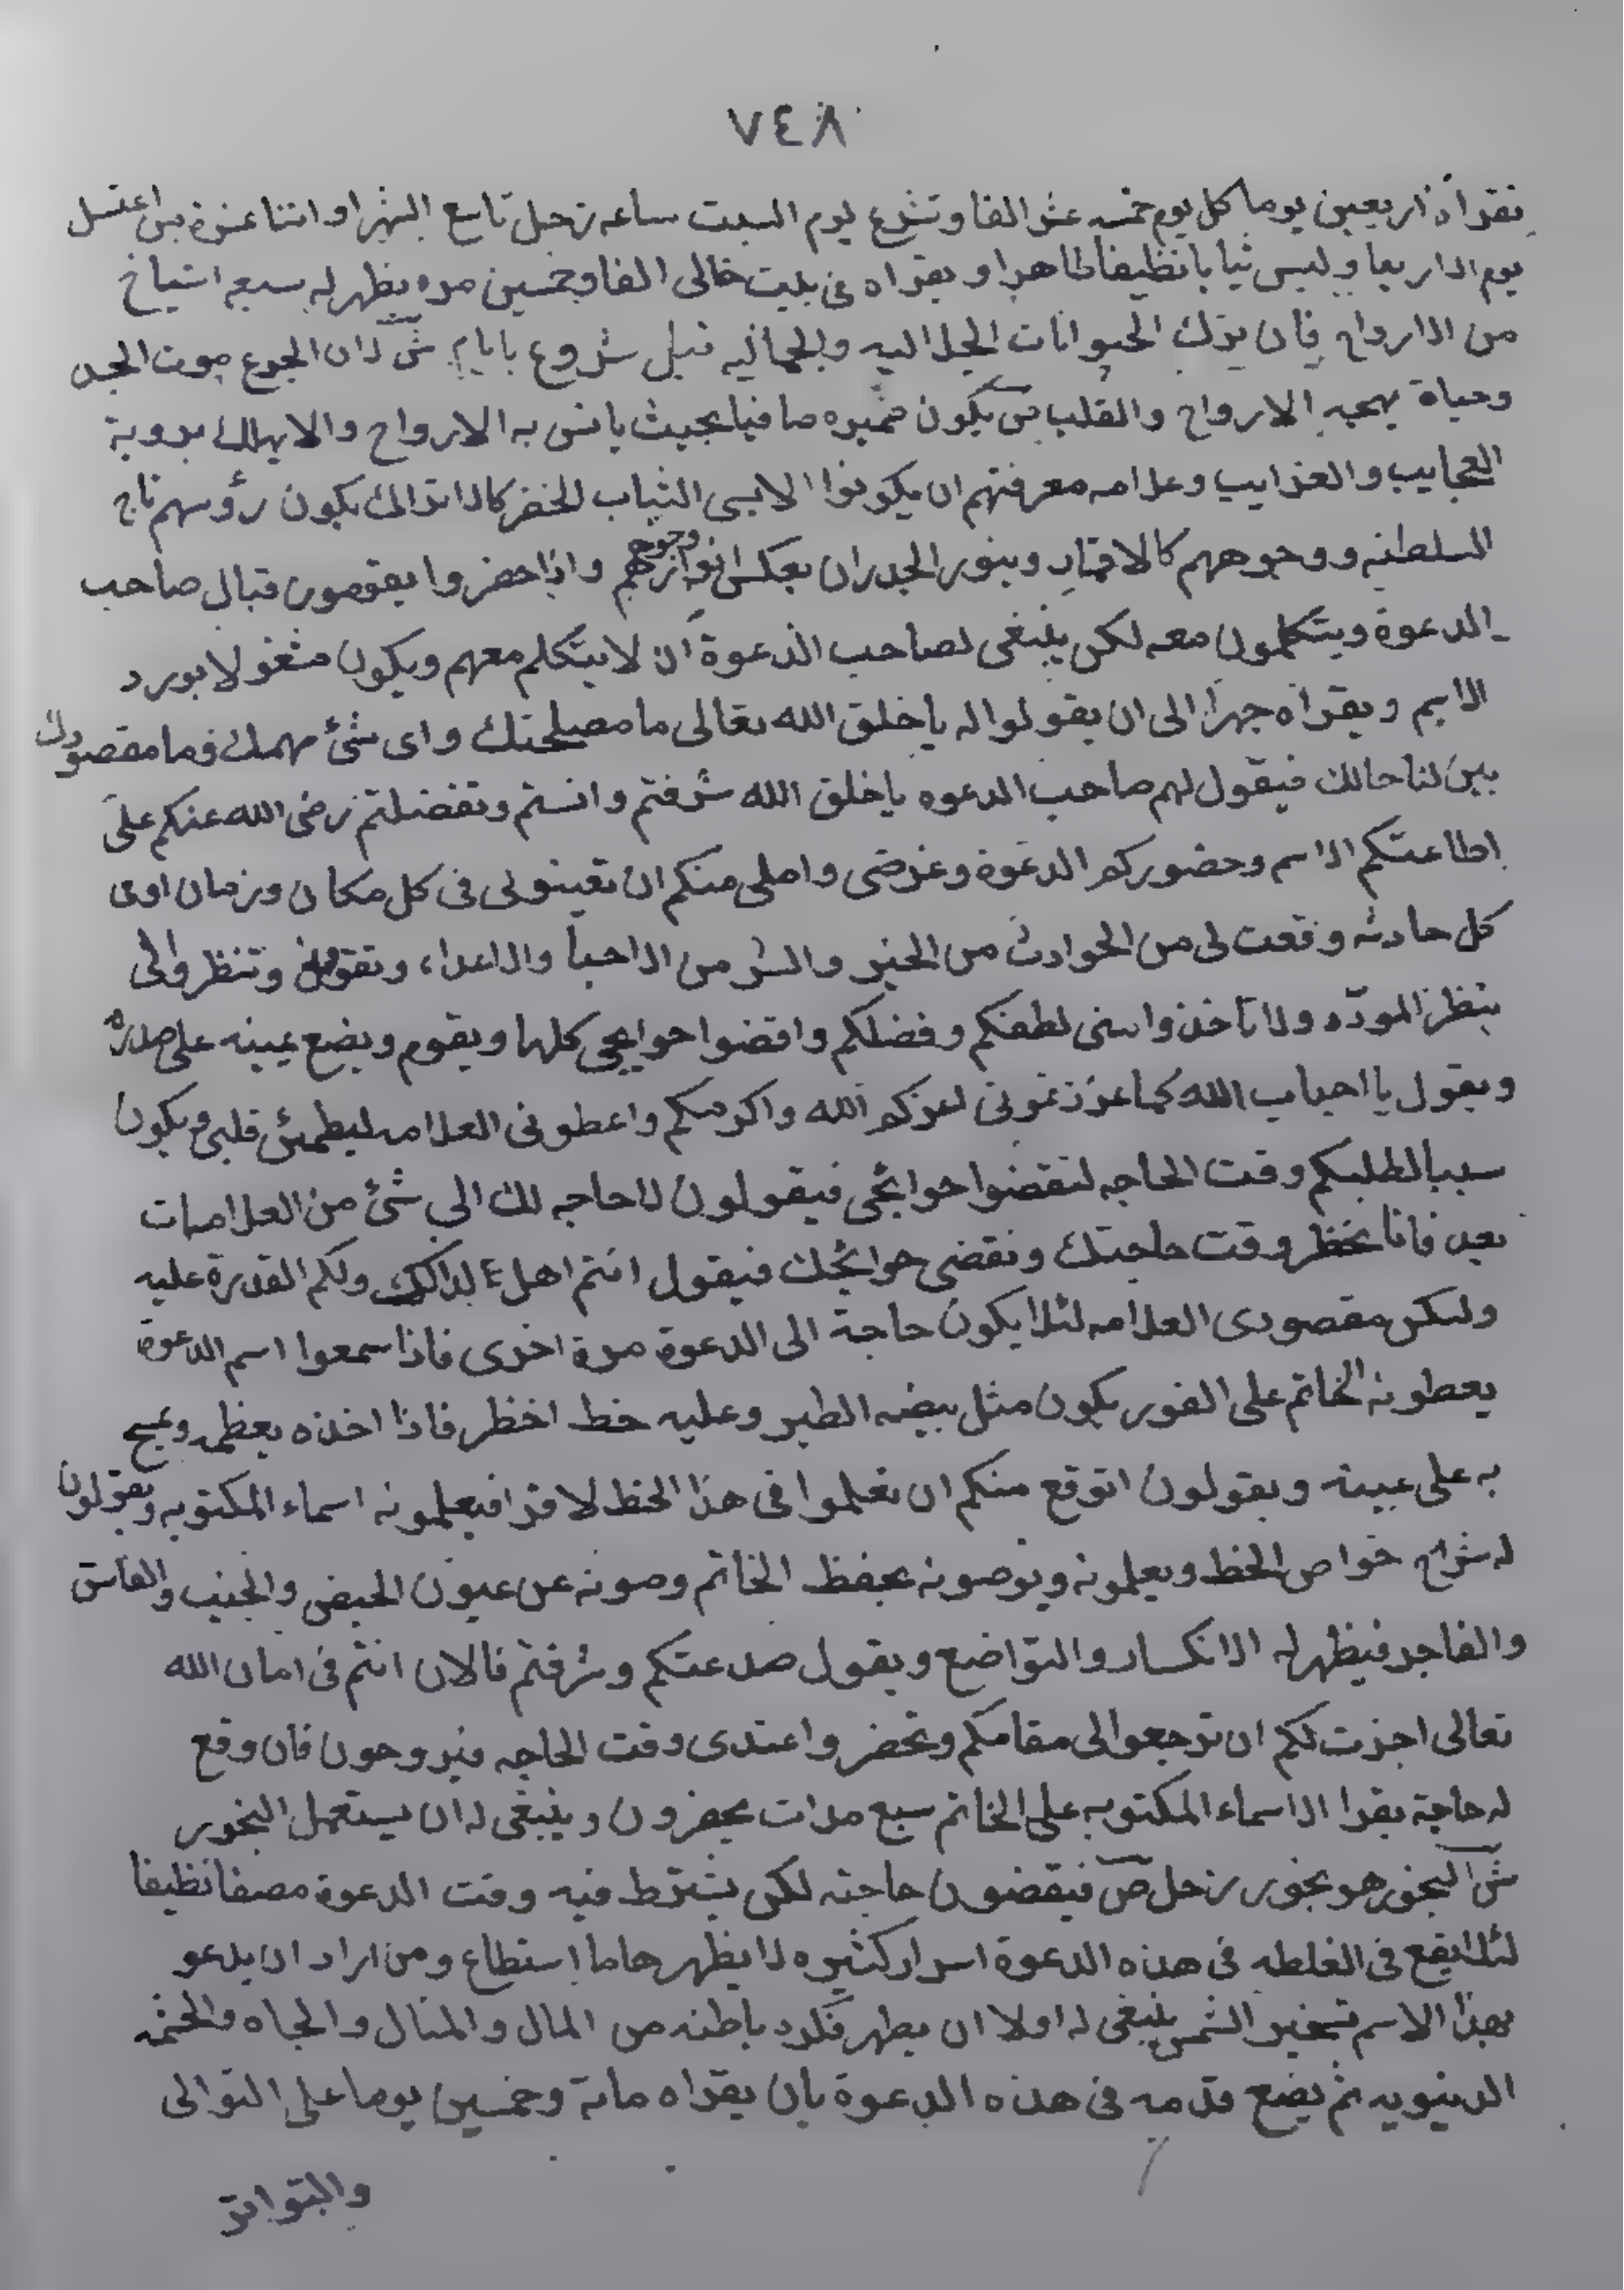 ٧٤٨
تقراه اربعين يوما كل يوم خمسه عشر الفا وتشرع يوم السبت ساعه زحل تاسع الشهر او اثنا عشرة اغتسل
يوم الاربعا ولبس ثيابا نظيفا طاهرا ويقراه فى بيت خالى الفا وخمسين مره يظهر له سبعه اشياخ
من الارواح فان يترك الحيوانات الجلاليه والجماليه قبل شروع بايام ش لان الجوع موت الجسد
وحياة بهجه الارواح والقلب ص يكون ضميره صافيا بحيث يانس به الارواح والايهالك بروية
العجايب والغرايب وعلامه معرفتهم ان يكونوا لابسى الثياب الخضر كالاتراك يكون رؤسهم تاج
السلطنه ووجوههم كالاقمار وينور الجدران بعكس انوار وجوههم واذا حضروا يقومون قبال صاحب
الدعوة ويتكلمون معه لكن ينبغى لصاحب الدعوة ان لا يتكلم معهم ويكون مشغولا بورد
الاسم ويقراه جهرا الى ان يقولوا له ياخلق الله تعالى ما مصلحتك واى شئ مهمك وما مقصودك
بين لنا حالك فيقول لهم صاحب الدعوه ياخلق الله شرفتم وانستم وتفضلتم رضى الله عنكم على
اطاعتكم الاسم وحضوركم الدعوة وغرضى واملى منكم ان تعينونى فى كل مكان وزمان اوفى
كل حادثه وقعت لى من الحوادث من الخير والشر من الاحبا والاعداء وتنظروا الى
بنظر المودّه ولا تاخذوا منى لطفكم وفضلكم واقضوا حوايجى كلها ويقوم ويضع يمينه على صدره
ويقول يا احباب الله كما عززتمونى اعزكم الله واكرمكم واعطونى العلامه ليطمئن قلبى ويكون
سببا لطلبكم وقت الحاجه لتقضوا حوائجى فيقولون لا حاجه لك الي شئ من العلامات
بعد فانا نحظر وقت حاجتك ونقضى حوائجك فيقول انتم اهل لذالك ولكم القدرة عليه
ولكن مقصودى العلامه لئلا يكون حاجة الى الدعوة مرة اخرى فاذا سمعوا اسم الدعوة
يعطونه الخاتم على الفور يكون مثل بيضه الطير وعليه خط اخظر فاذا اخذه يعظمه ويمسح
به على عينه ويقولون اتوقع منكم ان تعلموا فى هذا الخظ لاقرا فيعلمونه اسماء المكتوبه ويقولون
له شرح خواص الخظ ويعلمونه ويوصونه بحفظ الخاتم وصونه عن عيون الحيض والجنب والفاسق
والفاجر فيظهر له الانكسار والتواضع ويقول صدعتكم وشرفتم فالان انتم فى امان الله
تعالى اجزت لكم ان ترجعوا الى مقامكم وتحضروا عندى وقت الحاجه فيروحون فان وقع
له حاجة يقرا الاسماء المكتوبه على الخاتم سبع مرات يحضرون وينبغى له ان يستعمل البخور
ش البخور هو بخور زحل ص فيقضون حاجته لكن يشترط فيه وقت الدعوة مصفا نظيفا
لئلا يقع فى الغلطه فى هذه الدعوة اسرار كثيره لا يظهرها ما استطاع ومن اراد ان يدعو
بهذا الاسم تسخير الشمس ينبغى له اولا ان يطهر باطنه من المال والمنال والجاه والحشمه
الدنيويه ثم يضع قدمه فى هذه الدعوة بان يقراه ماىة وخمسين يوما على التوالى
والتواتر